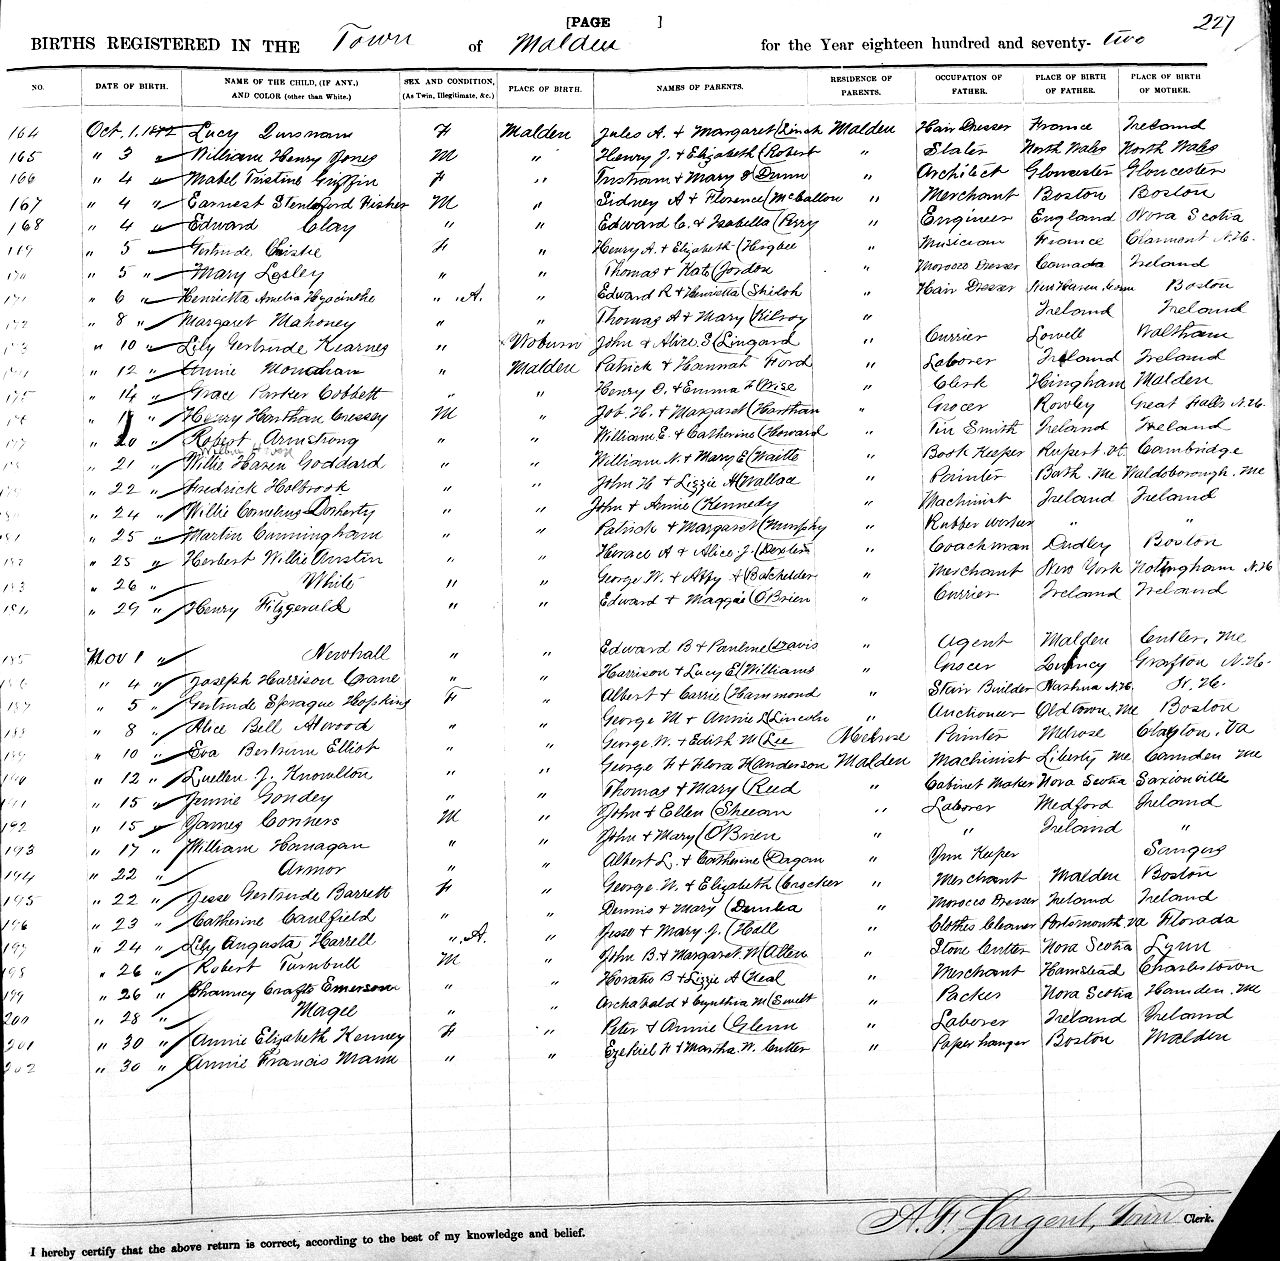 [PAGE ] 227
BIRTHS REGISTERED IN THE Town of Malden for the Year eighteen hundred and seventy-two
NO. DATE OF BIRTH. NAME OF THE CHILD, (IF ANY.) AND COLOR (other than White.) SEX AND CONDITION, (As Twin, Illegitimate, &c.) PLACE OF BIRTH. NAMES OF PARENTS. RESIDENCE OF PARENTS. OCCUPATION OF FATHER. PLACE OF BIRTH OF FATHER. PLACE OF BIRTH OF MOTHER.
164 Oct. 1. 1872 Lucy F Malden Jules A. + Margaret (Linch Malden Hair Dresser France Ireland
165 " 3 " William Henry Jones M " Henry J. + Elizabeth (Robert " Slater North Wales North Wales
166 " 4 " Mabel Tristine Griffin F " Tristram + Mary (Dunn " Architect Gloucester Gloucester
167 " 4 " Earnest Fisher M " Sidney A + Florence (McCallon " Merchant Boston Boston
168 " 4 " Edward Clay " " Edward C. + Isabella (Perry " Engineer England Nova Scotia
169 " 5 " Gertrude Christie F " Henry A. + Elizabeth (Higbee " Musician France Claremont N.H.
170 " 5 " Mary Lesley " " Thomas + Kate (Jordon " Morocco Dresser Canada Ireland
171 " 6 " Henrietta Amelia Hyacinthe " A. " Edward R + Henrietta (Shiloh " Hair Dresser New Haven, Conn Boston
172 " 8 " Margaret Mahoney " " Thomas A + Mary (Kilroy " Ireland Ireland
173 " 10 " Lily Gertrude Kearnes " Woburn John + Alice S (Lingard " Currier Lowell Waltham
174 " 12 " Annie Monahan " Malden Patrick + Hannah Ford " Laborer Ireland Ireland
175 " 14 " Grace Parker Cobbett " " Henry O. + Emma F (Wise " Clerk Hingham Malden
176 " " Henry Harthan Cressey M " Job. H. + Margaret (Harthan " Grocer Rowley Great Falls N.H.
177 " 20 " Robert Armstrong " " William E. + Catherine (Howard " Tin Smith Ireland Ireland
178 " 21 " Willie Haven Goddard " " William N. + Mary E (Waitte " Book Keeper Rupert Vt. Cambridge
179 " 22 " Fredrick Holbrook " " John H + Lizzie A (Wallace " Painter Bath. Me Waldsborough. Me
180 " 24 " Willie Cornelius Doherty " " John + Annie (Kennedy " Machinist Ireland Ireland
181 " 25 " Martin Cunningham " " Patrick + Margaret (Murphy " Rubber Worker " "
182 " 25 " Herbert Willie Austin " " Horace A + Alice J. (Dexter " Coachman Dudley Boston
183 " 26 " White " " George W. + Abby A (Batchelder " Merchant New York Nottingham N.H
184 " 29 " Henry Fitzgerald " " Edward + Maggie (O'Brien " Currier Ireland Ireland
185 Nov 1 " Newhall " " Edward B + Pauline (Davis " Agent Malden Cutler, Me
186 " 4 " Joseph Harrison Crane " " Harrison + Lucy E (Williams " Grocer Quincy Grafton N.H.
187 " 5 " Gertrude Sprague Hopkins F " Albert + Carrie (Hammond " Stair Builder Nashua N.H. N.H.
188 " 8 " Alice Bell Atwood " " George M + Annie L (Lincoln " Auctioneer Oldtown, Me Boston
189 " 10 " Eva Bertrum Elliot " " George W. + Edith M (Lee Melrose Painter Melrose Clayton, Va
190 " 12 " Luellen J. Knowlton " " George F. + Flora H Anderson Malden Machinist Liberty Me Camden Me
191 " 15 " Jennie Gondey " " Thomas + Mary (Reed " Cabinet Maker Nova Scotia Saxionville
192 " 15 " James Conners M " John + Ellen (Sheean " Laborer Medford Ireland
193 " 17 " William Hanagan " " John + Mary (O'Brien " " Ireland "
194 " 22 " Armor " " Albert L. + Catherine (Dagan " Keeper Saugus
195 " 22 " Jesse Gertrude Barrett F " George W. + Elizabeth (Crocker " Merchant Malden Boston
196 " 23 " Catherine Caulfield " " Dennis + Mary " Morocco Dresser Ireland Ireland
197 " 24 " Lily Augusta Harrell " A. " Jesse + Mary J. (Hall " Clothes Cleaner Portsmouth Va Florada
198 " 26 " Robert Turnbull M " John B. + Margaret M (Allen " Stone Cutter Nova Scotia Lynn
199 " 26 " Chauncy Crafts Emerson " " Horatio B + Lizzie A (Neal " Merchant Hamstead Charlestown
200 " 28 " Magee " " Archabald + Cynthia M (Swett " Packer Nova Scotia Hamden, Me
201 " 30 " Annie Elizabeth Kenney F " Peter + Annie (Glenn " Laborer Ireland Ireland
202 " 30 " Annie Francis Mann " " Ezekiel + Martha. W. Cutter " Paper hanger Boston Malden
A. F. Sargent, Town Clerk.
I hereby certify that the above return is correct, according to the best of my knowledge and belief.